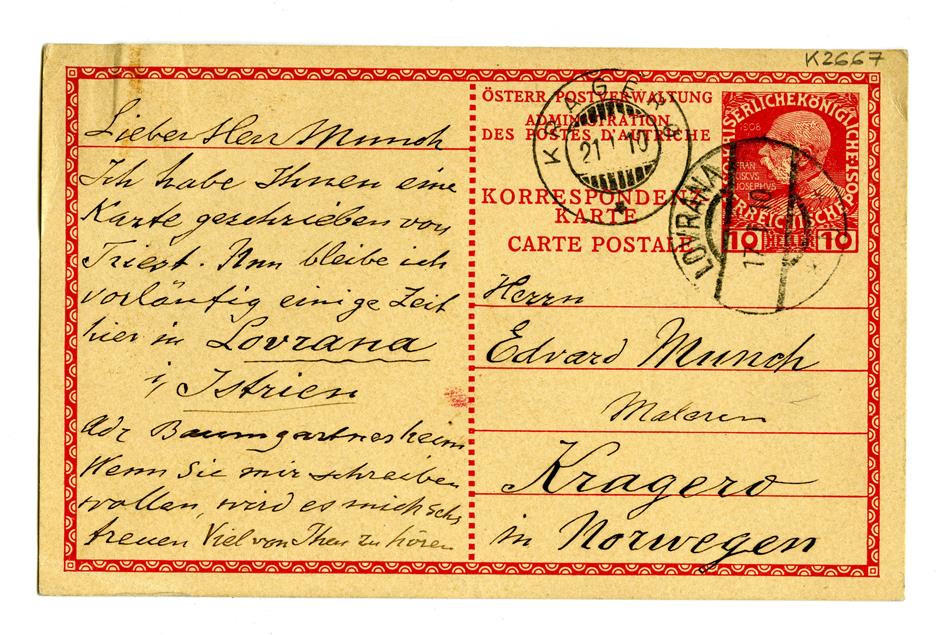 K2667
Lieber Herr Munch
Ich habe Ihnen eine
Karte geschrieben von
Triest. Nun bleibe ich
vorläufig einige Zeit
hier in Lovrana
i/ Istrien
Adr Baumgartnesheim
Wenn Sie mir schreiben
wollen, wird es mich sehr
freuen Viel von Ihen zu hören
ÖSTERR. POSTVERWALTUNG
ADMINISTRATION
DES POSTES D'AUTRICHE
KORRESPONDENZ
KARTE
CARTE POSTALE
KRAGERØ
21 1 10
1908
FRAN
CISCVS
JOSEPHVS
10 HELLER 10
LOVRANA
17 1 10
Herrn
Edvard Munch
Maleren
Kragerö
in Norwegen